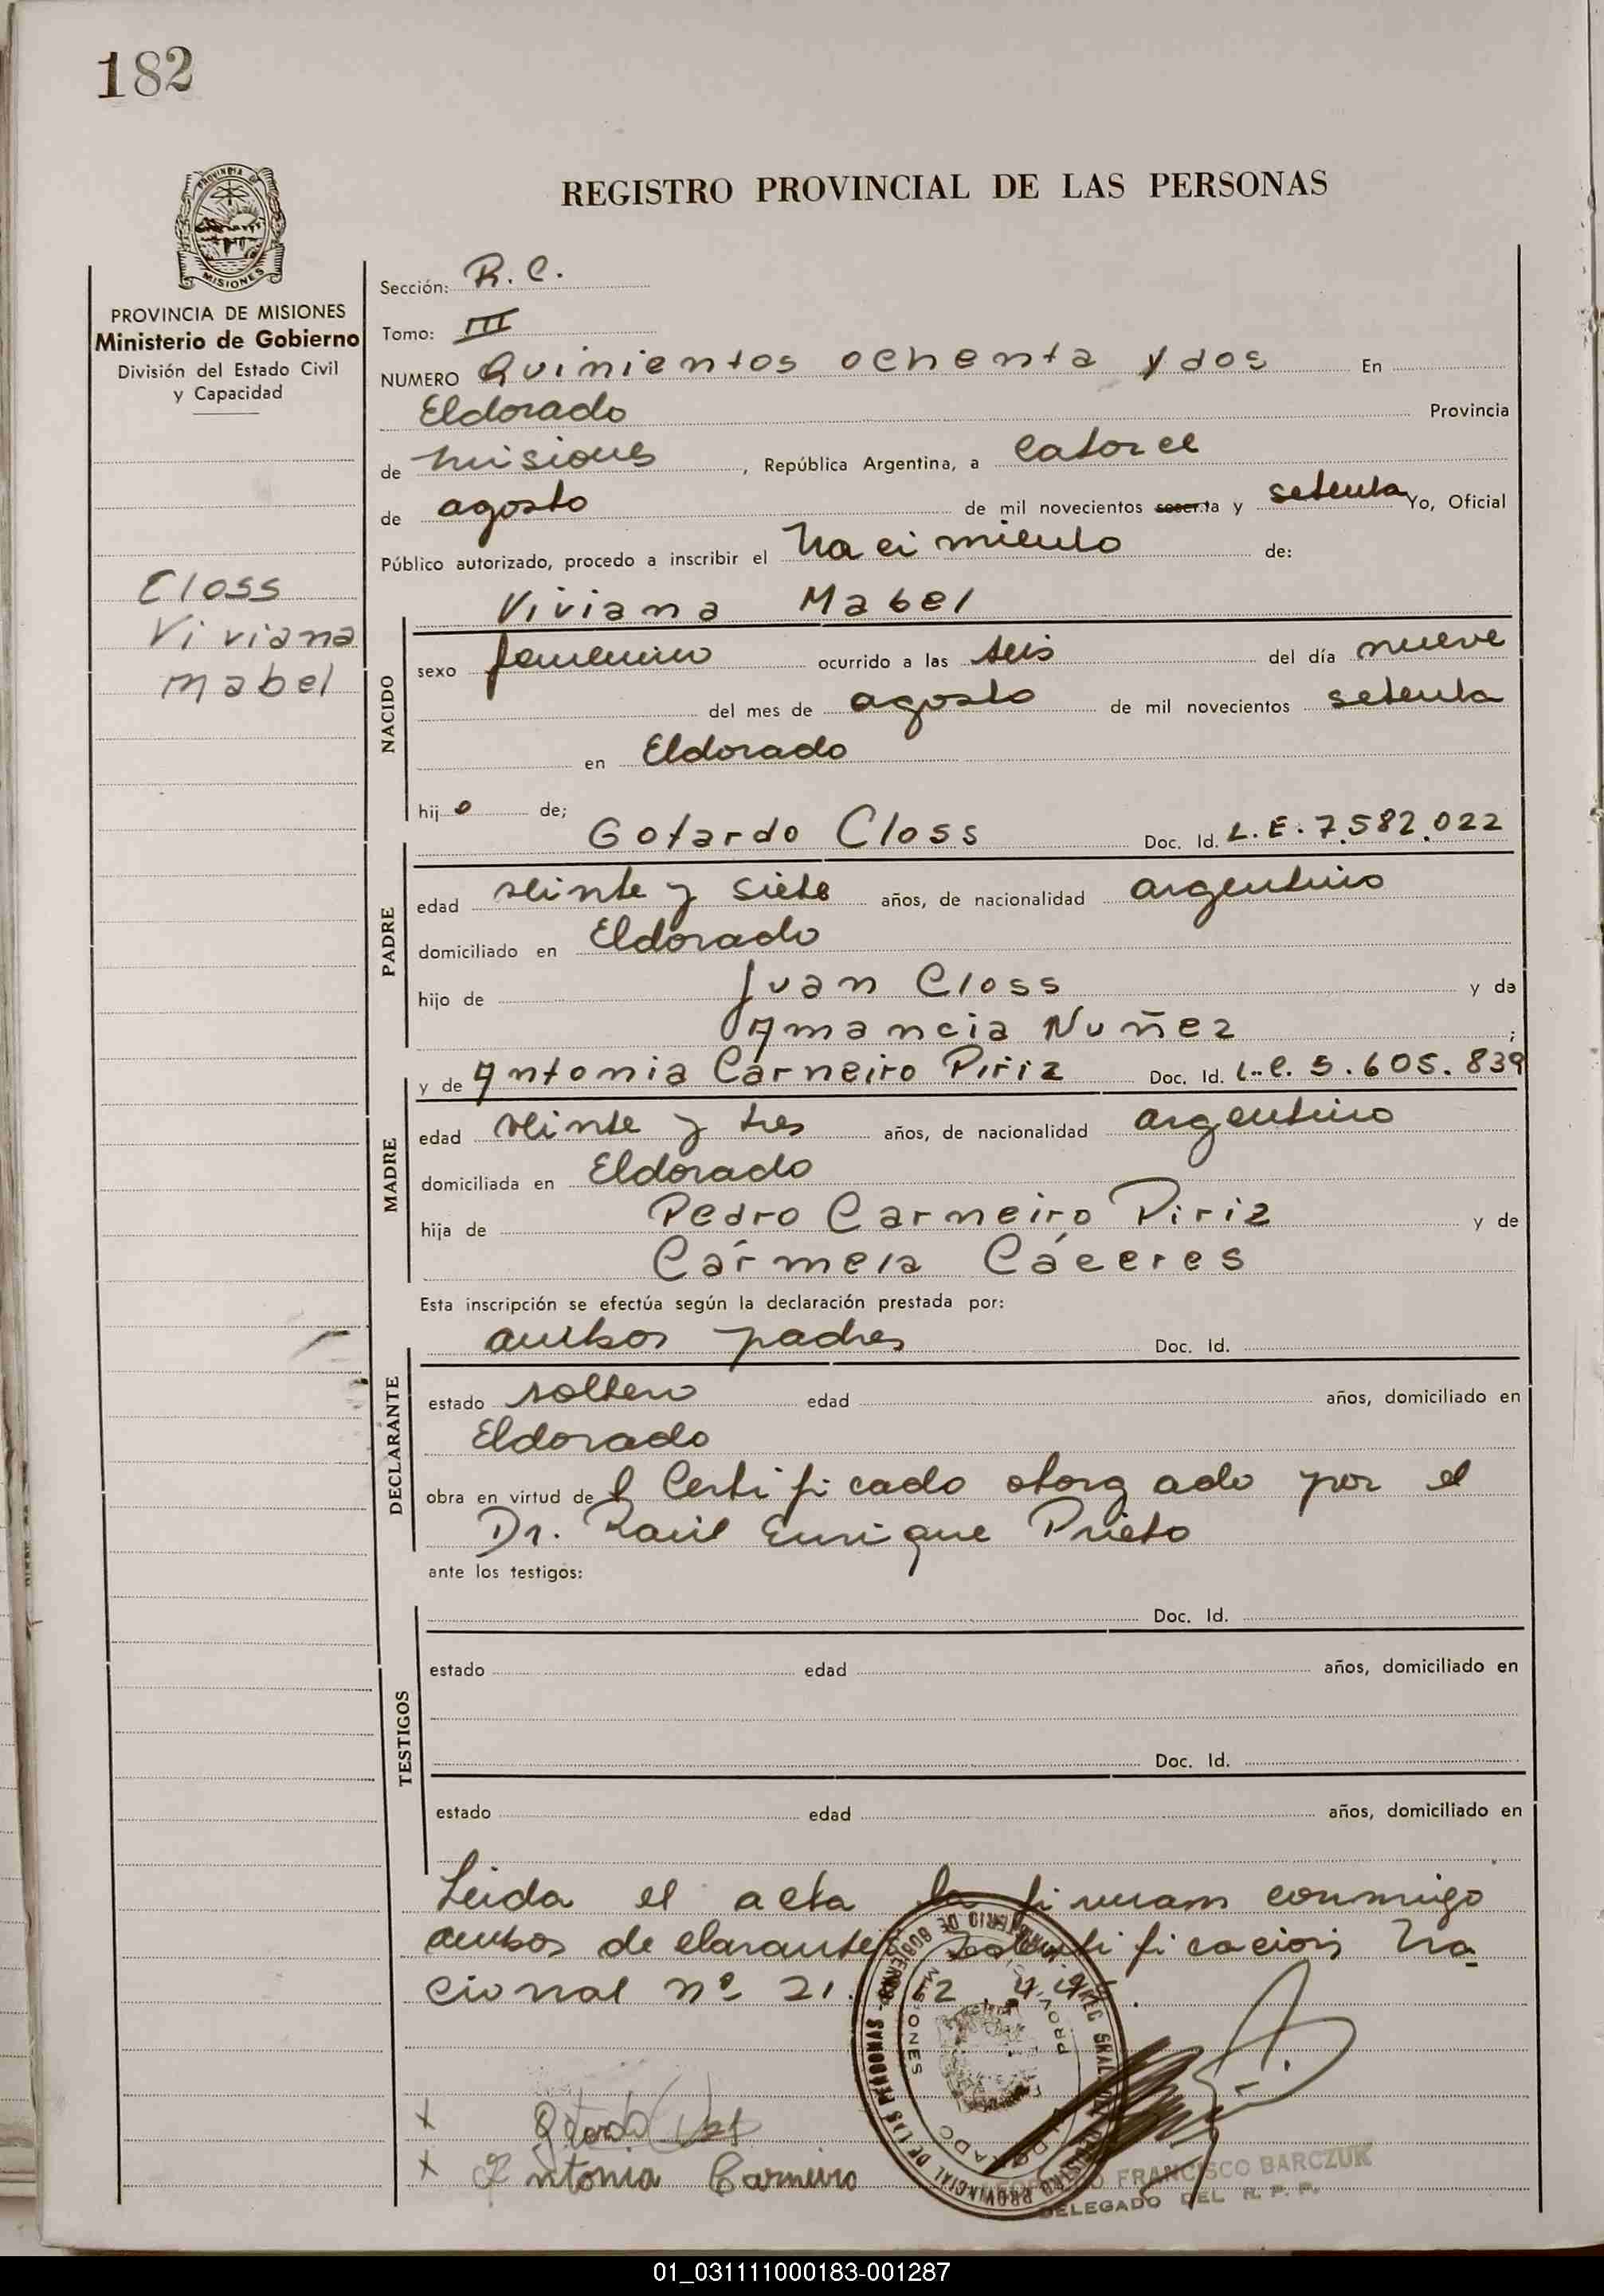 182
PROVINCIA DE
MISIONES
PROVINCIA DE MISIONES
Ministerio de Gobierno
División del Estado Civil
y Capacidad
Closs
Viviana
Mabel
REGISTRO PROVINCIAL DE LAS PERSONAS
Sección: R. C.
Tomo: III
NUMERO Quinientos ochenta y dos En
Eldorado Provincia
de Misiones, República Argentina, a Catorce
de agosto de mil novecientos sesenta y setenta Yo, Oficial
Público autorizado, procedo a inscribir el Nacimiento de:
Viviana Mabel
NACIDO
sexo femenino ocurrido a las seis del día nueve
del mes de agosto de mil novecientos setenta
en Eldorado
hijo de;
Gotardo Closs Doc. Id. L.E. 7.582.022
PADRE
edad veinte y siete años, de nacionalidad argentino
domiciliado en Eldorado
hijo de Juan Closs y de
Amancia Nuñez ;
y de Antonia Carneiro Piriz Doc. Id. L.C. 5.605.839
MADRE
edad veinte y tres años, de nacionalidad argentino
domiciliada en Eldorado
hija de Pedro Carneiro Piriz y de
Cármela Cáceres
Esta inscripción se efectúa según la declaración prestada por:
ambos padres Doc. Id.
DECLARANTE
estado soltero edad años, domiciliado en
Eldorado
obra en virtud del Certificado otorgado por el
Dr. Raúl Enrique Prieto
ante los testigos:
TESTIGOS
Doc. Id.
estado edad años, domiciliado en
Doc. Id.
estado edad años, domiciliado en
Leida el acta la firmam conmigo
ambos declarantes Identificacion Na
cional nº 21.
Antonia Carneiro
REGISTRO PROVINCIAL DE LAS PERSONAS - MINISTERIO DE GOBIERNO
MISIONES
ELDORADO
FRANCISCO BARCZUK
DELEGADO DEL R. P. P.
01_031111000183-001287